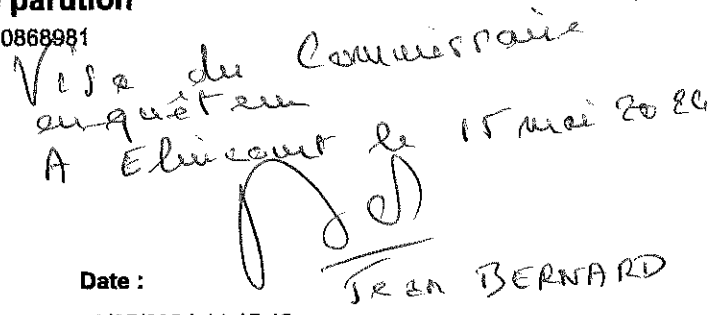 parution
0868981
Visa du Commissaire
enquêteur
A Elincourt le 15 mai 2024
Jean BERNARD
Date :